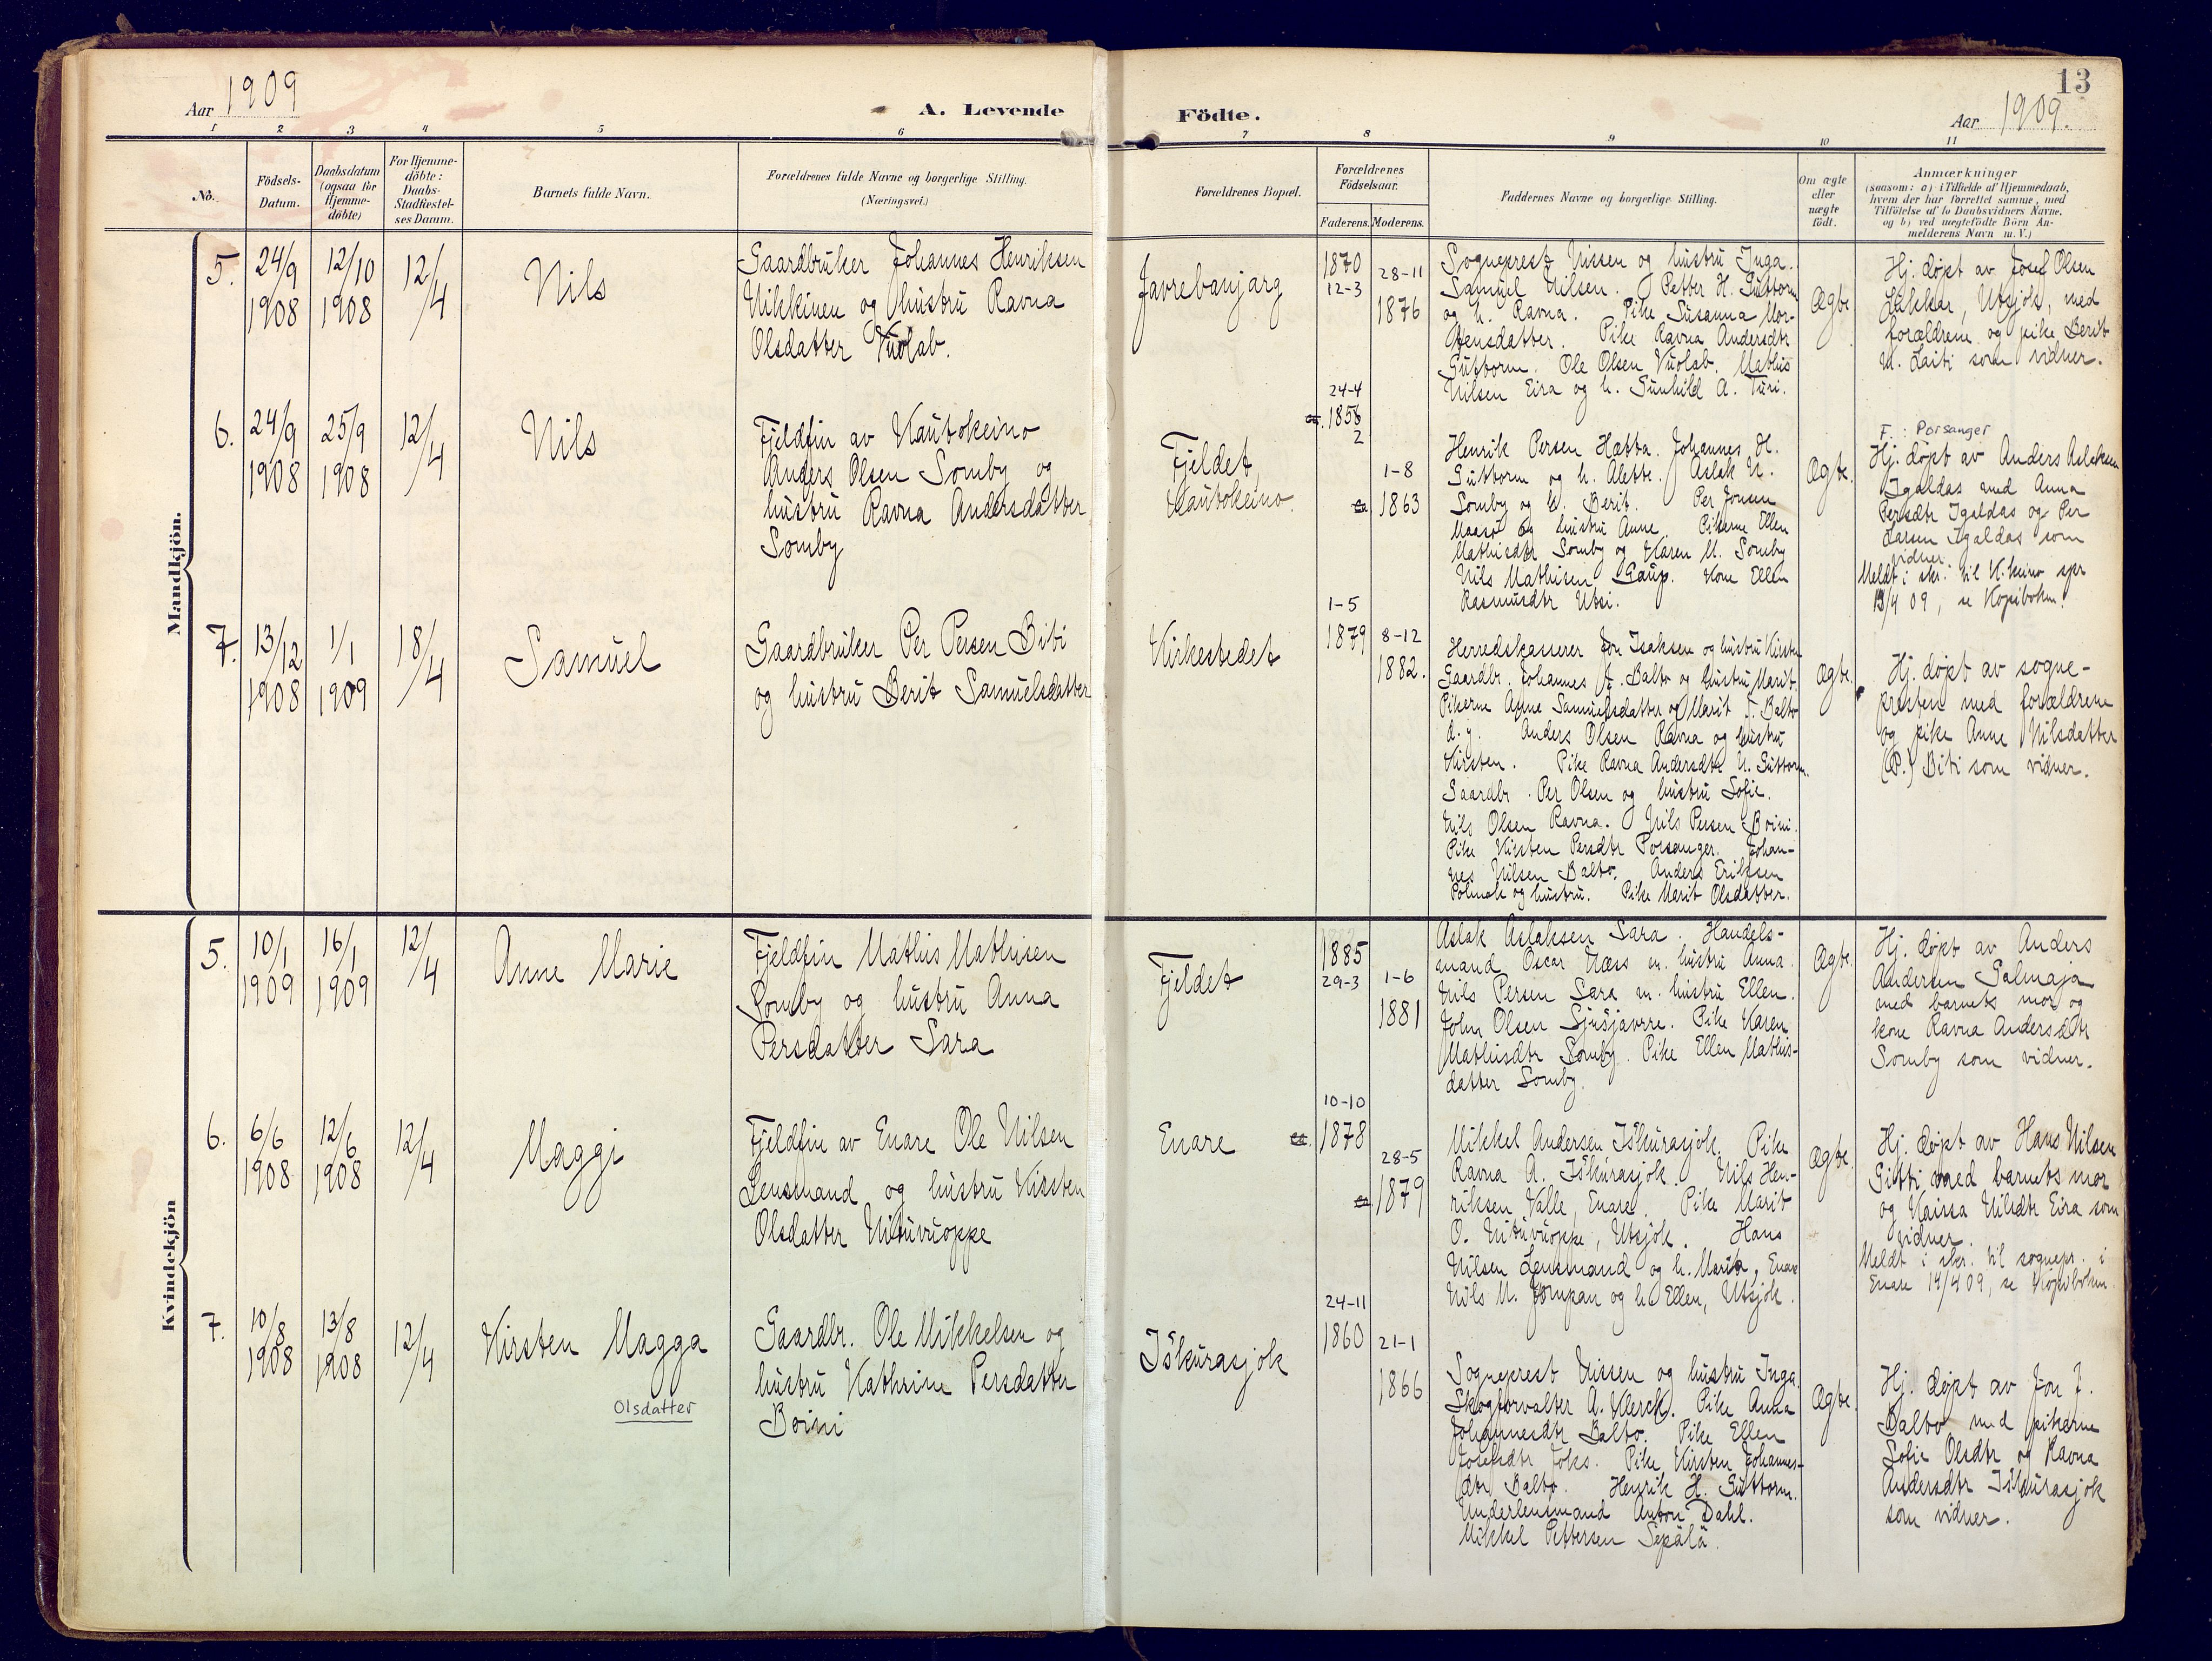 13
Aar 1909
A. Levende
Födte.
Aar 1909.
1 2 3 4 5 6 7 8 9 10 11
No.
Födsels-
Datum.
Daabsdatum
(ogsaa for
Hjemme-
döbte)
For Hjemme-
döbte:
Daabs-
Stadfæstel-
ses Datum.
Barnets fulde Navn.
Forældrenes fulde Navne og borgerlige Stilling.
(Næringsvei.)
Forældrenes Bopæl.
Forældrenes
Födselsaar.
Faderens. Moderens.
Faddernes Navne og borgerlige Stilling.
Om ægte
eller
uægte
födt.
Anmærkninger
(saasom: a) i Tilfælde af Hjemmedaab,
hvem der har forrettet samme, med
Tilföielse af to Daabsvidners Navne,
og b) ved uægtefödte Börn An-
melderens Navn m. V.)
Mandkjön.
5.
24/9
1908
12/10
1908
12/4
Nils
Gaardbruker Johannes Henriksen
Nikkinen og hustru Ravna
Olsdatter Vuolab.
Javrebanjarg
1870
12-3
28-11
1876
Sogneprest Nissen og hustru Inga.
Samuel Nilsen. Petter H. Guttorm
og h. Ravna. Pike Susanna Mor-
tensdatter. Pike Ravna Andersdtr
Guttorm. Ole Olsen Vuolab. Mathis
Nilsen Eira og h. Gunhild A. Turi.
Ægte
Hj. døpt av Josef Olsen
Lukkar, Utsjok, med
forældrene og pike Berit
M. Laiti som vidner.
6.
24/9
1908
25/9
1908
12/4
Nils
Fjeldfin av Kautokeino
Anders Olsen Somby og
hustru Ravna Andersdatter
Somby
Fjeldet,
Kautokeino.
24-4
ca. 1856
2
1-8
ca 1863
Henrik Persen Hætta. Johannes H.
Guttorm og h. Alette. Aslak N.
Somby og h. Berit. Per Jonsen
Maasø og hustru Anne. Pikerne Ellen
Mathisdtr Somby og Karen M. Somby
Nils Mathisen Gaup. Kone Ellen
Rasmusdtr Utsi.
Ægte.
F.: Porsanger
Hj. døpt av Anders Aslaksen
Igaldas med Anna
Persdtr Igaldas og Per
Larsen Igaldas som
vidner.
Meldt i skr. til K.keino spr
13/4 09, se Kopiboken.
7.
13/12
1908
1/1
1909
18/4
Samuel
Gaardbruker Per Persen Biti
og hustru Berit Samuelsdatter
Kirkestedet
1-5
1879
8-12
1882.
Herredskasserer Jon Isaksen og hustru Kirsten
Gaardbr. Johannes J. Balto og hustru Marit.
Pikerne Anne Samuelsdatter og Marit J. Balto
d.y. Anders Olsen Ravna og hustru
Kirsten. Pike Ravna Andersdtr N. Guttorm.
Gaardbr. Per Olsen og hustru Sofie.
Nils Olsen Ravna. Nils Persen Boini.
Pike Kirsten Persdtr Porsanger. Johan-
nes Nilsen Balto. Anders Eriksen
Polmak og hustru. Pike Marit Olsdatter.
Ægte.
Hj. døpt av sogne-
presten med forældrene
og pike Anne Nilsdatter
(P.) Biti som vidner.
Kvindekjön
5.
10/1
1909
16/1
1909
12/4
Anne Marie
Fjeldfin Mathis Mathisen
Somby og hustru Anna
Persdatter Sara
Fjeldet
1885
29-3
1-6
1881
Aslak Aslaksen Sara. Handels-
mand Oscar Næss m. hustru Anna.
Nils Persen Sara m. hustru Ellen.
John Olsen Sjusjavrre. Pike Karen
Mathisdtr Somby. Pike Ellen Mathis-
datter Somby.
Ægte.
Hj. døpt av Anders
Andersen Galmaja
med barnets mor og
kone Ravna Andersdtr
Somby som vidner.
6.
6/6
1908
12/6
1908
12/4
Maggi
Fjeldfin av Enare Ole Nilsen
Lensmand og hustru Kirsten
Olsdatter Nituvuoppe
Enare
10-10
ca. 1878
28-5
ca. 1879
Mikkel Andersen Iškurasjok. Pike
Ravna A. Iškurasjok. Nils Hen-
riksen Valle, Enare. Pike Marit
O. Nituvuoppe, Utsjok. Hans
Nilsen Lensmand og h. Marit, Enare
Nils N. Jompan og h. Ellen, Utsjok.
Ægte.
Hj. døpt av Hans Nilsen
Gitti med barnets mor
og Kaisa Nilsdtr Eira som
vidner.
Meldt i skr. til sognepr. i
Enare 14/4 09, se Kopiboken.
7.
10/8
1908
13/8
1908
12/4
Kirsten Magga
Olsdatter
Gaardbr. Ole Mikkelsen og
hustru Kathrine Persdatter
Boini
Iškurasjok
24-11
1860
21-1
1866
Sogneprest Nissen og hustru Inga.
Skogforvalter A. Klerck. Pike Anna
Johannesdtr Balto. Pike Ellen
Josefsdtr Joks. Pike Kirsten Johannes-
dtr Balto. Henrik H. Guttorm.
Underlensmand Anton Dahl.
Mikkel Pettersen Sepälä.
Ægte.
Hj. døpt av Jon J.
Balto med pikerne
Sofie Olsdtr og Ravna
Andersdtr Iškurasjok
som vidner.